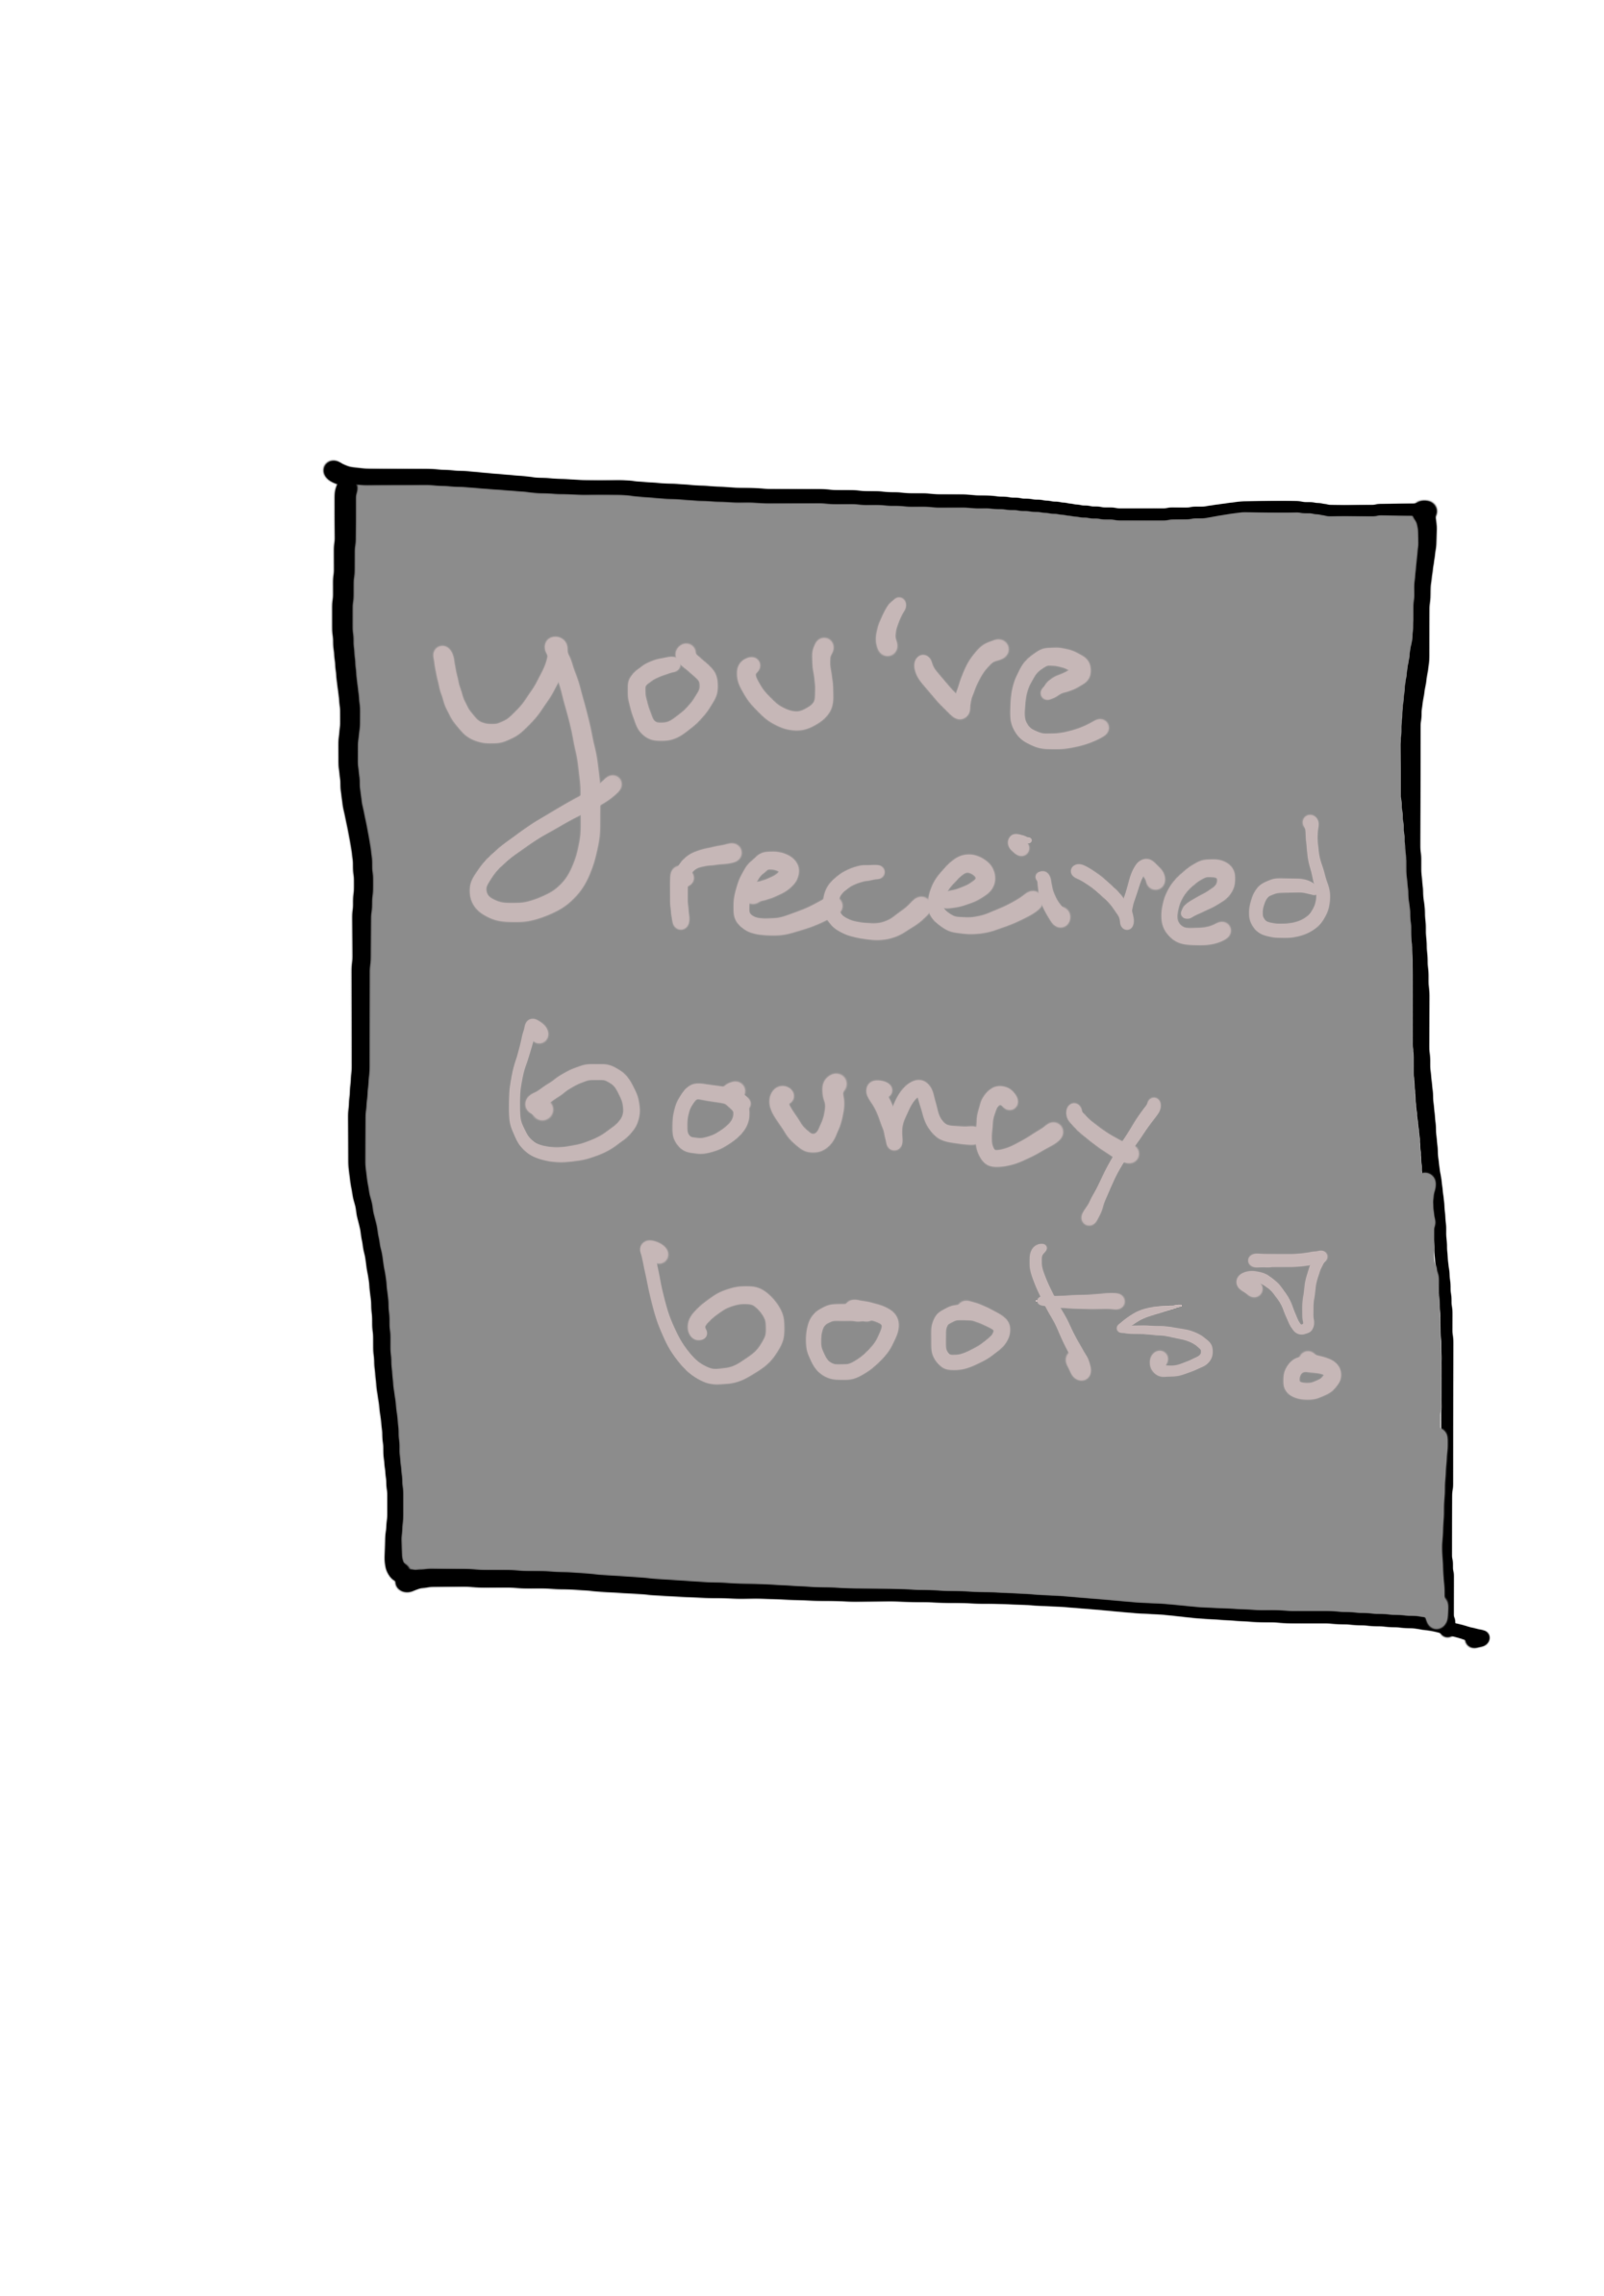 you've
receieved
bouncy
boots!